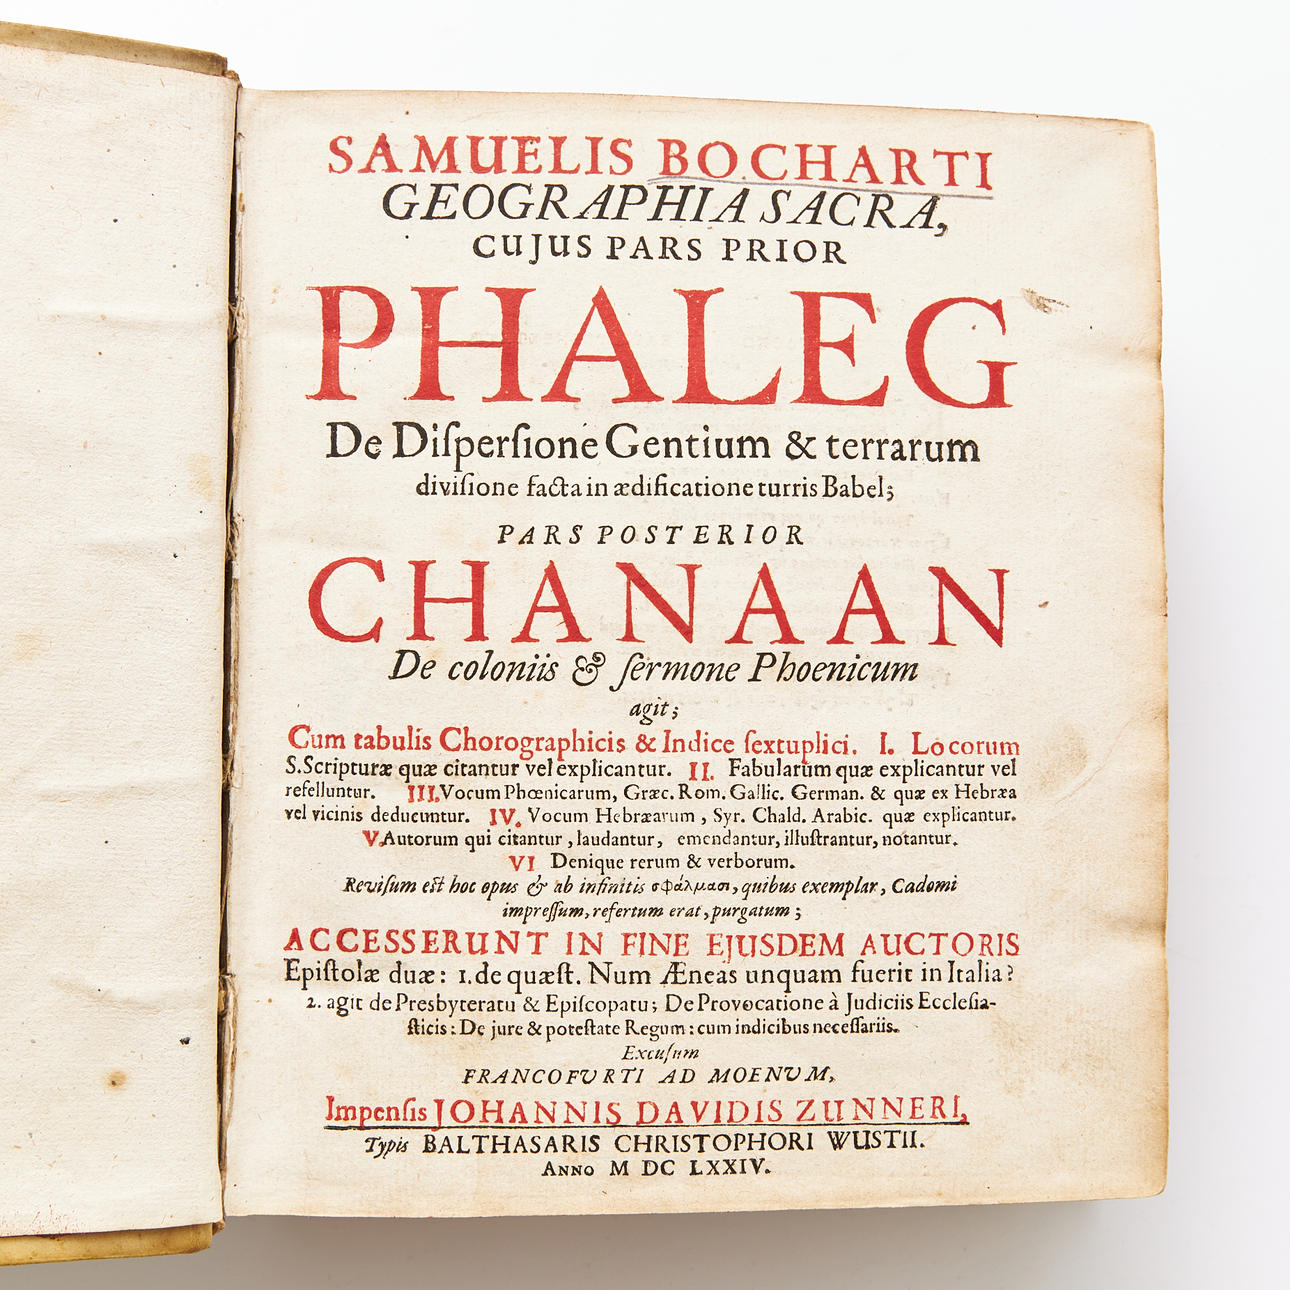 SAMUELIS BOCHARTI
GEOGRAPHIA SACRA,
CUJUS PARS PRIOR
PHALEG
De Diſperſione Gentium & terrarum
diviſione facta in ædificatione turris Babel;
PARS POSTERIOR
CHANAAN
De coloniis & ſermone Phoenicum
agit;
Cum tabulis Chorographicis & Indice ſextuplici. I. Locorum
S.Scripturæ quæ citantur vel explicantur. II. Fabularum quæ explicantur vel
refelluntur. III. Vocum Phœnicarum, Græc. Rom. Gallic. German. & quæ ex Hebræa
vel vicinis deducuntur. IV. Vocum Hebræarum, Syr. Chald. Arabic. quæ explicantur.
V. Autorum qui citantur, laudantur, emendantur, illuſtrantur, notantur.
VI Denique rerum & verborum.
Reviſum eſt hoc opus & ab infinitis σφάλμασι, quibus exemplar, Cadomi
impreſſum, refertum erat, purgatum;
ACCESSERUNT IN FINE EJUSDEM AUCTORIS
Epiſtolæ duæ: 1. de quæſt. Num Æneas unquam fuerit in Italia?
2. agit de Presbyteratu & Epiſcopatu; De Provocatione à Judiciis Eccleſia-
ſticis: De jure & poteſtate Regum: cum indicibus neceſſariis.
Excuſum
FRANCOFURTI AD MOENUM,
Impenſis JOHANNIS DAVIDIS ZUNNERI,
Typis BALTHASARIS CHRISTOPHORI WUSTII.
ANNO M DC LXXIV.